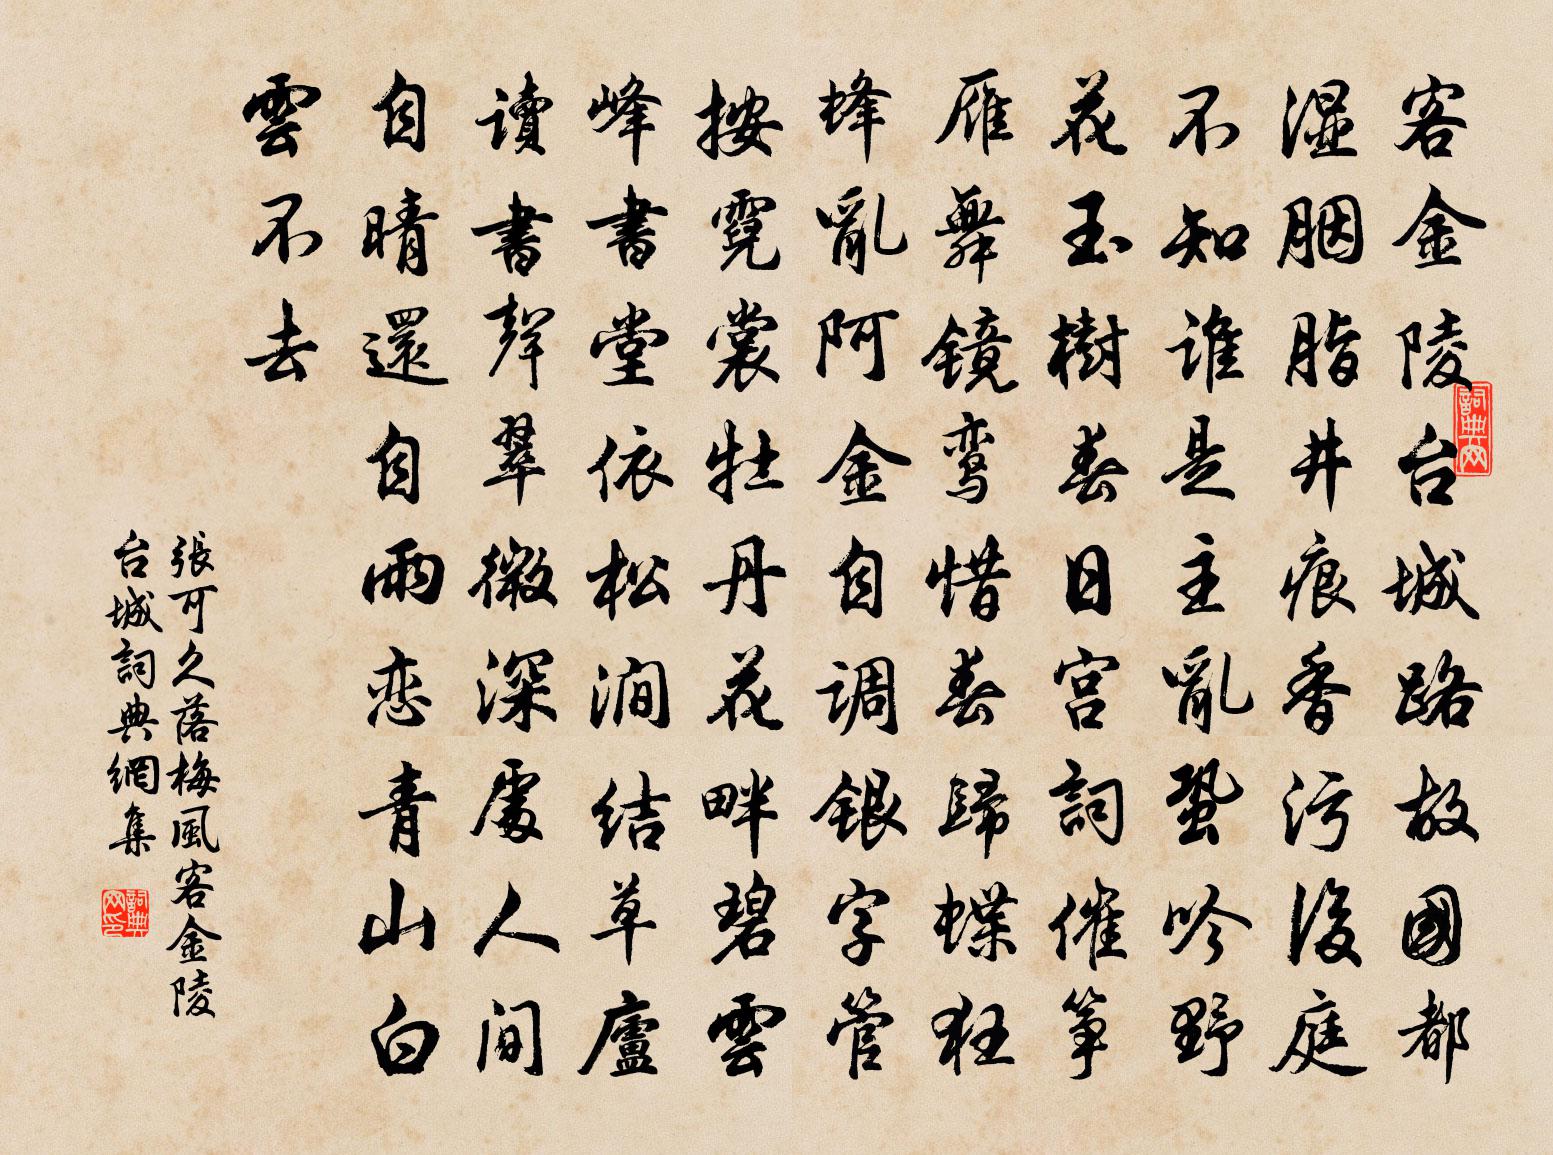 客金陵台城路故國都
湿胭脂井痕香污後庭
不知誰是主亂蛩吟野
花玉樹春日宮詞催筝
雁舞鏡鸾惜春歸蝶狂
蜂亂阿金自調銀字管
按霓裳牡丹花畔碧雲
峰書堂依松澗結草廬
讀書聲翠微深處人间
自晴還自雨恋青山白
雲不去
張可久落梅風客金陵
台城詞典網集
詞典网
詞典网印